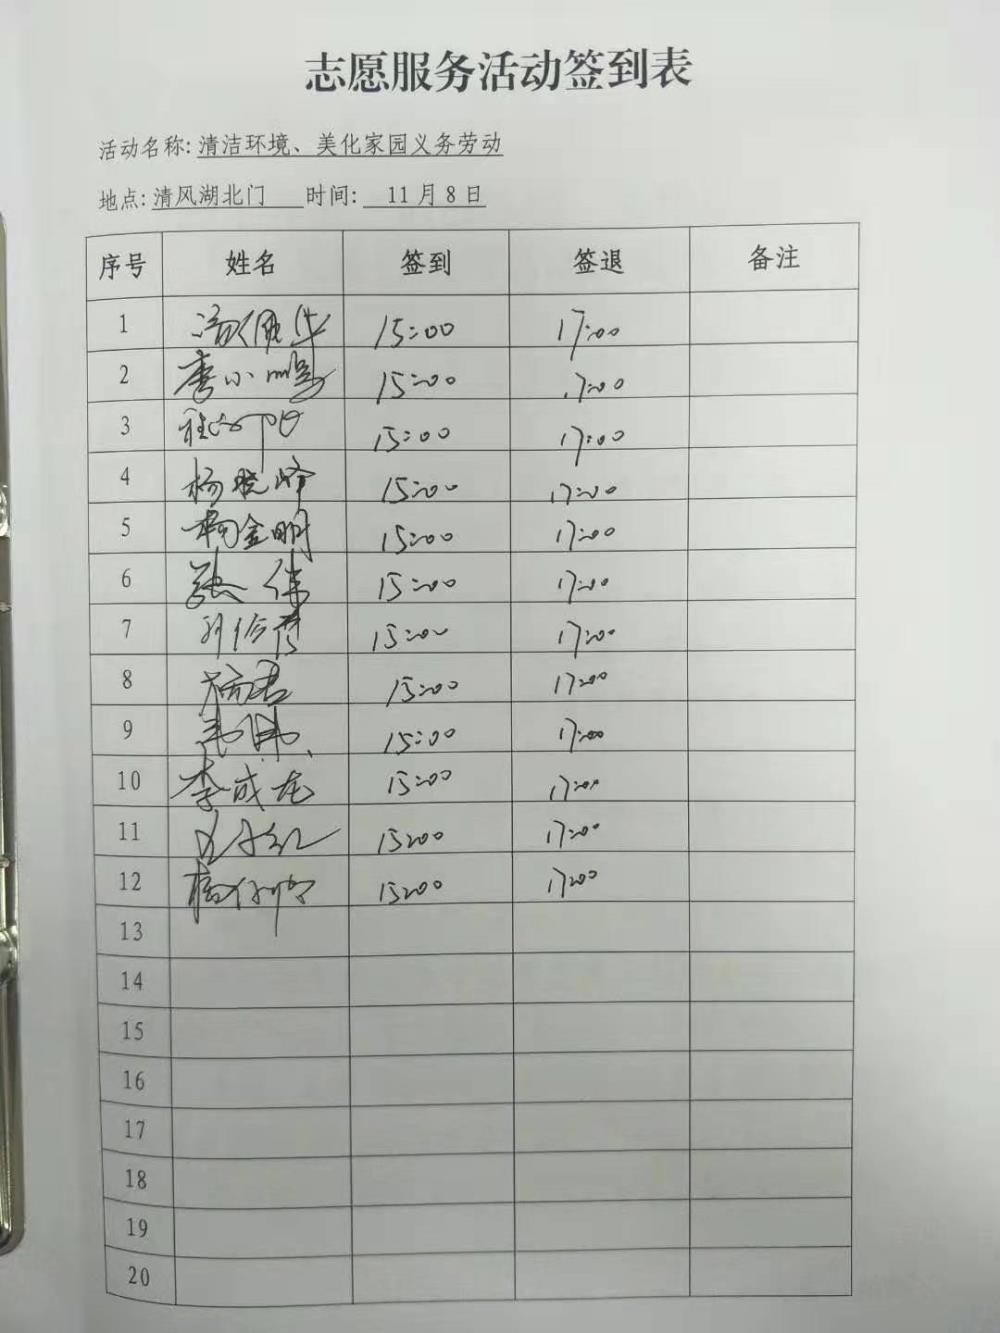 志愿服务活动签到表
活动名称: 清洁环境、美化家园义务劳动
地点: 清风湖北门 时间: 11月8日
序号 姓名 签到 签退 备注
1 15:00 17:00
2 李小鹏 15:00 17:00
3 15:00 17:00
4 杨晓峰 15:00 17:00
5 杨金明 15:00 17:00
6 张伟 15:00 17:00
7 15:00 17:00
8 15:00 17:00
9 15:00 17:00
10 李成龙 15:00 17:00
11 15:00 17:00
12 15:00 17:00
13
14
15
16
17
18
19
20